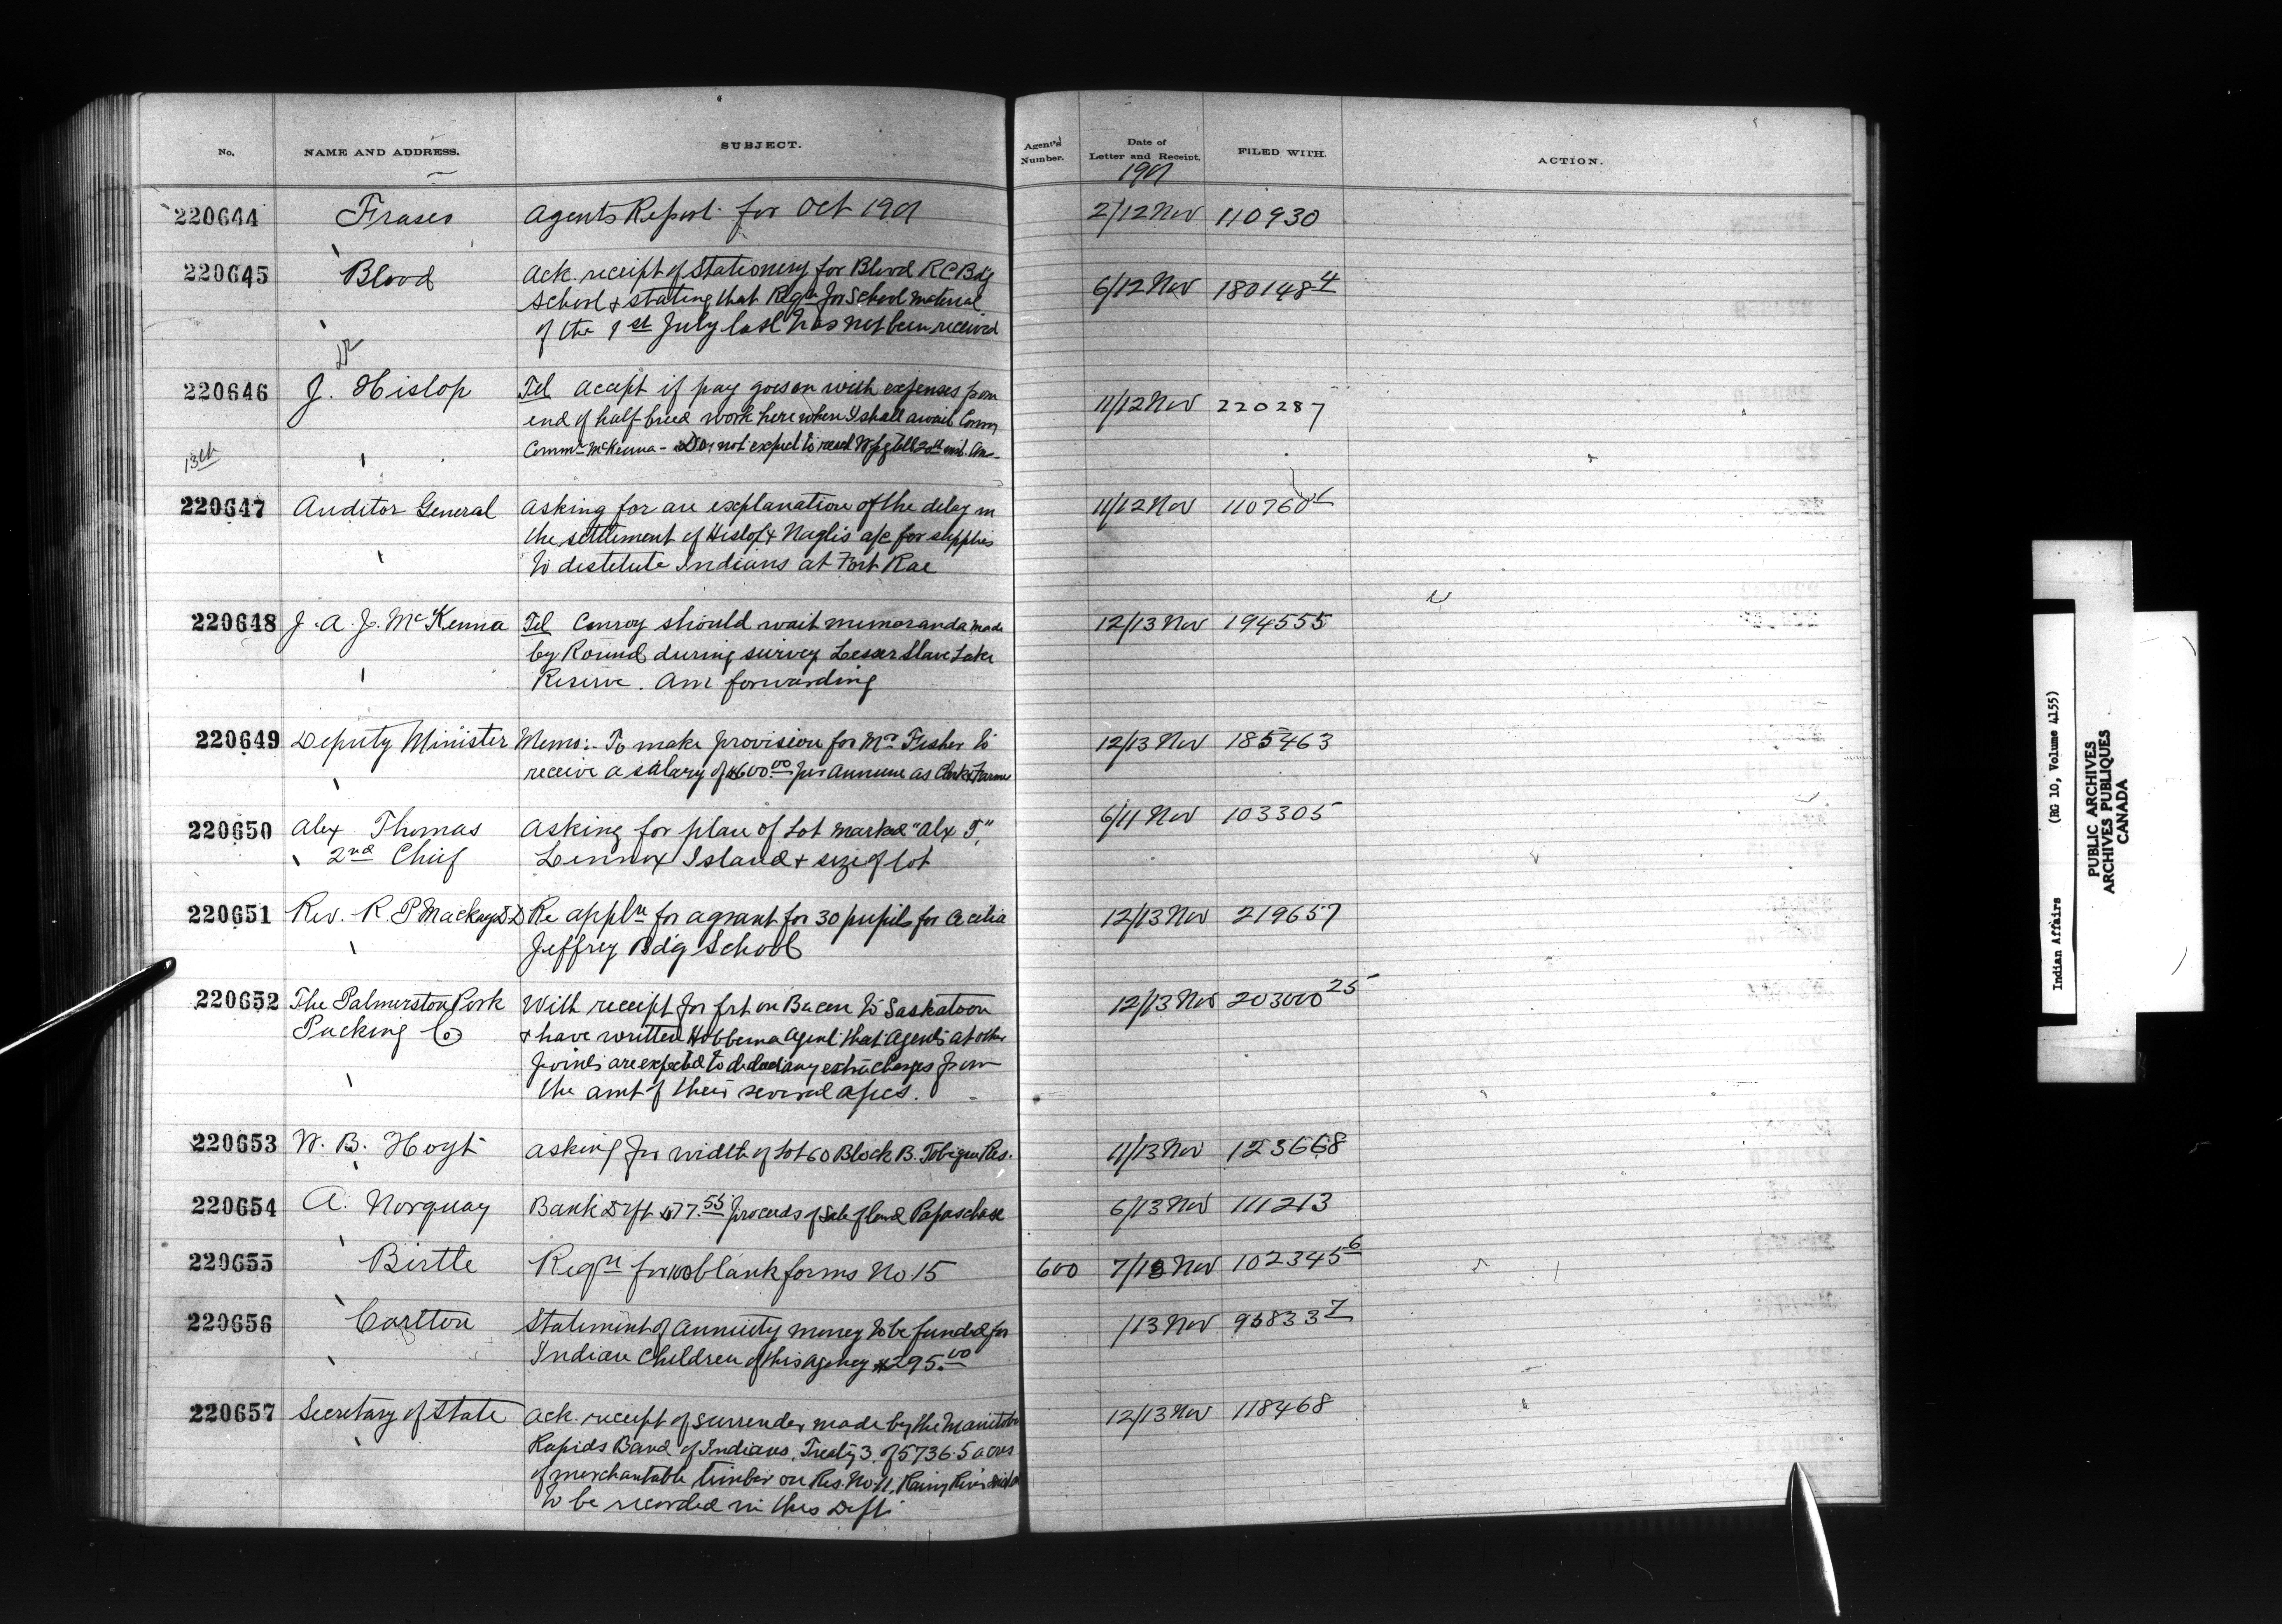 No. NAME AND ADDRESS. SUBJECT. Agent's Number. Date of Letter and Receipt. FILED WITH. ACTION.
190
220644 Fraser Agents Report for Oct 190 2/12 Nov 110930
220645 Blood Ack. receipt of Stationery for Blood RC Bdg 6/12 Nov 180148 4
School & stating that Reqn for School material
of the 1st July last has not been received
220646 J. Hislop Tel accept if pay goes on with expenses from 11/12 Nov 220287
end of half-breed work here when I shall await
13th Commr McKenna - Do not expect to reach Wpg till 20th
220647 Auditor General Asking for an explanation of the delay in 11/12 Nov 110760
the settlement of Hislop & Naglis a/c for supplies
to destitute Indians at Fort Rae
220648 J. A. J. McKenna Tel Conroy should wait memoranda made 12/13 Nov 194555
by Round during survey Lesser Slave Lake
Reserve. Am forwarding
220649 Deputy Minister Memo:- To make provision for Mr Fisher to 12/13 Nov 185463
receive a salary of $600.00 per annum as Clerk & Farmer
220650 Alex Thomas Asking for plan of Lot marked "Alx T", 6/11 Nov 103305
2nd Chief Lennox Island & size of lot
220651 Rev. R. P. Mackay D.D Re appln for a grant for 30 pupils for Cecilia 12/13 Nov 219657
Jeffrey Bdg School
220652 The Palmerston Pork With receipt for frt on Bacon to Saskatoon 12/13 Nov 203000 25
Packing Co & have written Hobbema Agent that Agents at other
points are expected to deduct any extra charges from
the amt of their several a/ccs.
220653 W. B. Hoyt Asking for width of Lot 60 Block B. Tobique Res. 11/13 Nov 123668
220654 A. Norquay Bank Dft $77.55 proceeds of Sale of land Papaschase 6/13 Nov 111213
220655 Birtle Reqn for 100 blank forms No. 15 600 7/13 Nov 102345 6
220656 Carlton Statement of Annuity money to be funded for /13 Nov 96833 7
Indian Children of this Agency $295.00
220657 Secretary of State Ack. receipt of surrender made by the Manitou 12/13 Nov 118468
Rapids Band of Indians, Treaty 3, of 5736.5 acres
of merchantable timber on Res. No 11, Rainy River
to be recorded in this Dept.
Indian Affairs (RG 10, Volume 4155)
PUBLIC ARCHIVES
ARCHIVES PUBLIQUES
CANADA